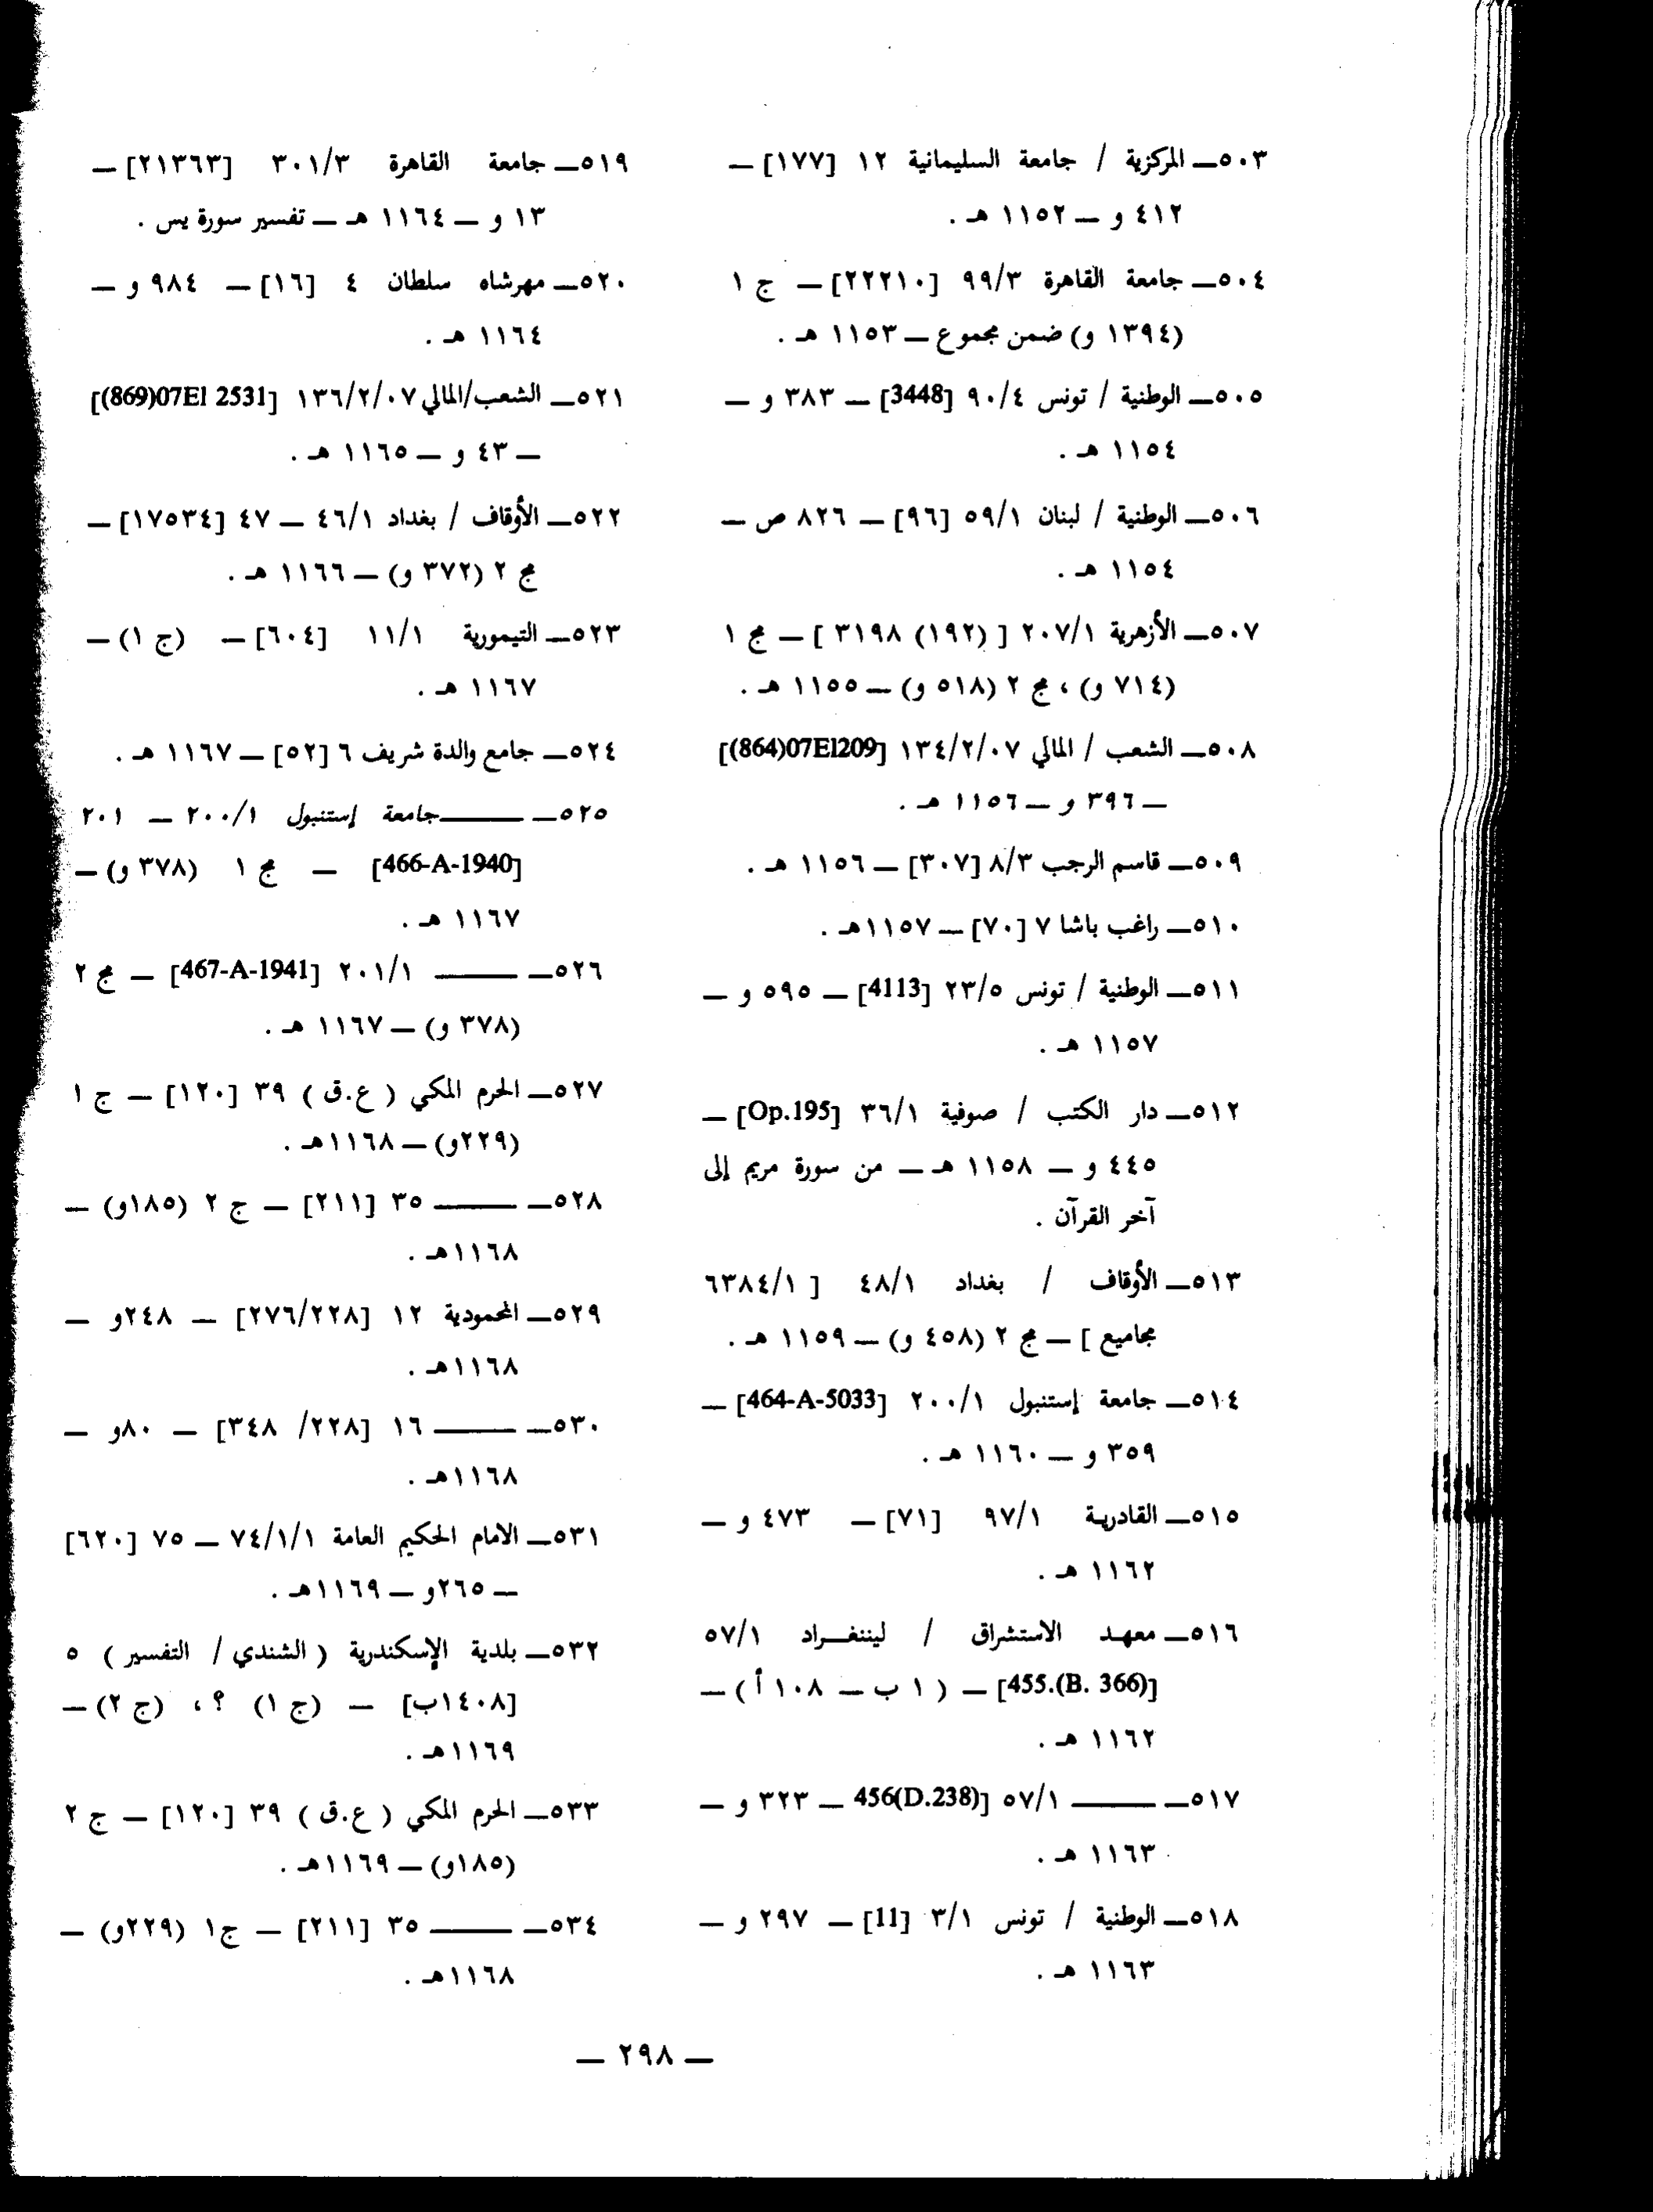 ٥٠٣ــ المركزية / جامعة السليمانية ١٢ [١٧٧] ــ
٤١٢ و ــ ١١٥٢ هـ .
٥٠٤ــ جامعة القاهرة ٩٩/٣ [٢٢٢١٠] ــ ج ١
(١٣٩٤ و) ضمن مجموع ــ ١١٥٣ هـ .
٥٠٥ــ الوطنية / تونس ٩٠/٤ [3448] ــ ٣٨٣ و ــ
١١٥٤ هـ .
٥٠٦ــ الوطنية / لبنان ٥٩/١ [٩٦] ــ ٨٢٦ ص ــ
١١٥٤ هـ .
٥٠٧ــ الأزهرية ٢٠٧/١ [ (١٩٢) ٣١٩٨ ] ــ مج ١
(٧١٤ و) ، مج ٢ (٥١٨ و) ــ ١١٥٥ هـ .
٥٠٨ــ الشعب / المالي ١٣٤/٢/٠٧ [(864)07El209]
ــ ٣٩٦ و ــ ١١٥٦ هـ .
٥٠٩ــ قاسم الرجب ٨/٣ [٣٠٧] ــ ١١٥٦ هـ .
٥١٠ــ راغب باشا ٧ [٧٠] ــ ١١٥٧هـ .
٥١١ــ الوطنية / تونس ٢٣/٥ [4113] ــ ٥٩٥ و ــ
١١٥٧ هـ .
٥١٢ــ دار الكتب / صوفية ٣٦/١ [Op.195] ــ
٤٤٥ و ــ ١١٥٨ هـ ــ من سورة مريم إلى
آخر القرآن .
٥١٣ــ الأوقاف / بغداد ٤٨/١ [ ٦٣٨٤/١
مجاميع ] ــ مج ٢ (٤٥٨ و) ــ ١١٥٩ هـ .
٥١٤ــ جامعة إستنبول ٢٠٠/١ [464-A-5033] ــ
٣٥٩ و ــ ١١٦٠ هـ .
٥١٥ــ القادرية ٩٧/١ [٧١] ــ ٤٧٣ و ــ
١١٦٢ هـ .
٥١٦ــ معهد الاستشراق / ليننغراد ٥٧/١
[455.(B. 366)] ــ ( ١ ب ــ ١٠٨ أ ) ــ
١١٦٢ هـ .
٥١٧ــ ــــــــ ٥٧/١ [456(D.238) ــ ٣٢٣ و ــ
١١٦٣ هـ .
٥١٨ــ الوطنية / تونس ٣/١ [11] ــ ٢٩٧ و ــ
١١٦٣ هـ .
٥١٩ــ جامعة القاهرة ٣٠١/٣ [٢١٣٦٣] ــ
١٣ و ــ ١١٦٤ هـ ــ تفسير سورة يس .
٥٢٠ــ مهرشاه سلطان ٤ [١٦] ــ ٩٨٤ و ــ
١١٦٤ هـ .
٥٢١ــ الشعب/المالي ١٣٦/٢/٠٧ [(869)07El 2531]
ــ ٤٣ و ــ ١١٦٥ هـ .
٥٢٢ــ الأوقاف / بغداد ٤٦/١ ــ ٤٧ [١٧٥٣٤] ــ
مج ٢ (٣٧٢ و) ــ ١١٦٦ هـ .
٥٢٣ــ التيمورية ١١/١ [٦٠٤] ــ (ج ١) ــ
١١٦٧ هـ .
٥٢٤ــ جامع والدة شريف ٦ [٥٢] ــ ١١٦٧ هـ .
٥٢٥ــ ــــــــجامعة إستنبول ٢٠٠/١ ــ ٢٠١
[466-A-1940] ــ مج ١ (٣٧٨ و) ــ
١١٦٧ هـ .
٥٢٦ــ ــــــــ ٢٠١/١ [467-A-1941] ــ مج ٢
(٣٧٨ و) ــ ١١٦٧ هـ .
٥٢٧ــ الحرم المكي ( ع.ق ) ٣٩ [١٢٠] ــ ج ١
(٢٢٩و) ــ ١١٦٨هـ .
٥٢٨ــ ــــــــ ٣٥ [٢١١] ــ ج ٢ (١٨٥و) ــ
١١٦٨هـ .
٥٢٩ــ المحمودية ١٢ [٢٧٦/٢٢٨] ــ ٢٤٨و ــ
١١٦٨هـ .
٥٣٠ــ ــــــــ ١٦ [٢٢٨/ ٣٤٨] ــ ٨٠و ــ
١١٦٨هـ .
٥٣١ــ الامام الحكيم العامة ٧٤/١/١ ــ ٧٥ [٦٢٠]
ــ ٢٦٥و ــ ١١٦٩هـ .
٥٣٢ــ بلدية الإسكندرية ( الشندي / التفسير ) ٥
[١٤٠٨ب] ــ (ج ١) ؟ ، (ج ٢) ــ
١١٦٩هـ .
٥٣٣ــ الحرم المكي ( ع.ق ) ٣٩ [١٢٠] ــ ج ٢
(١٨٥و) ــ ١١٦٩هـ .
٥٣٤ــ ــــــــ ٣٥ [٢١١] ــ ج١ (٢٢٩و) ــ
١١٦٨هـ .
ــ ٢٩٨ ــ